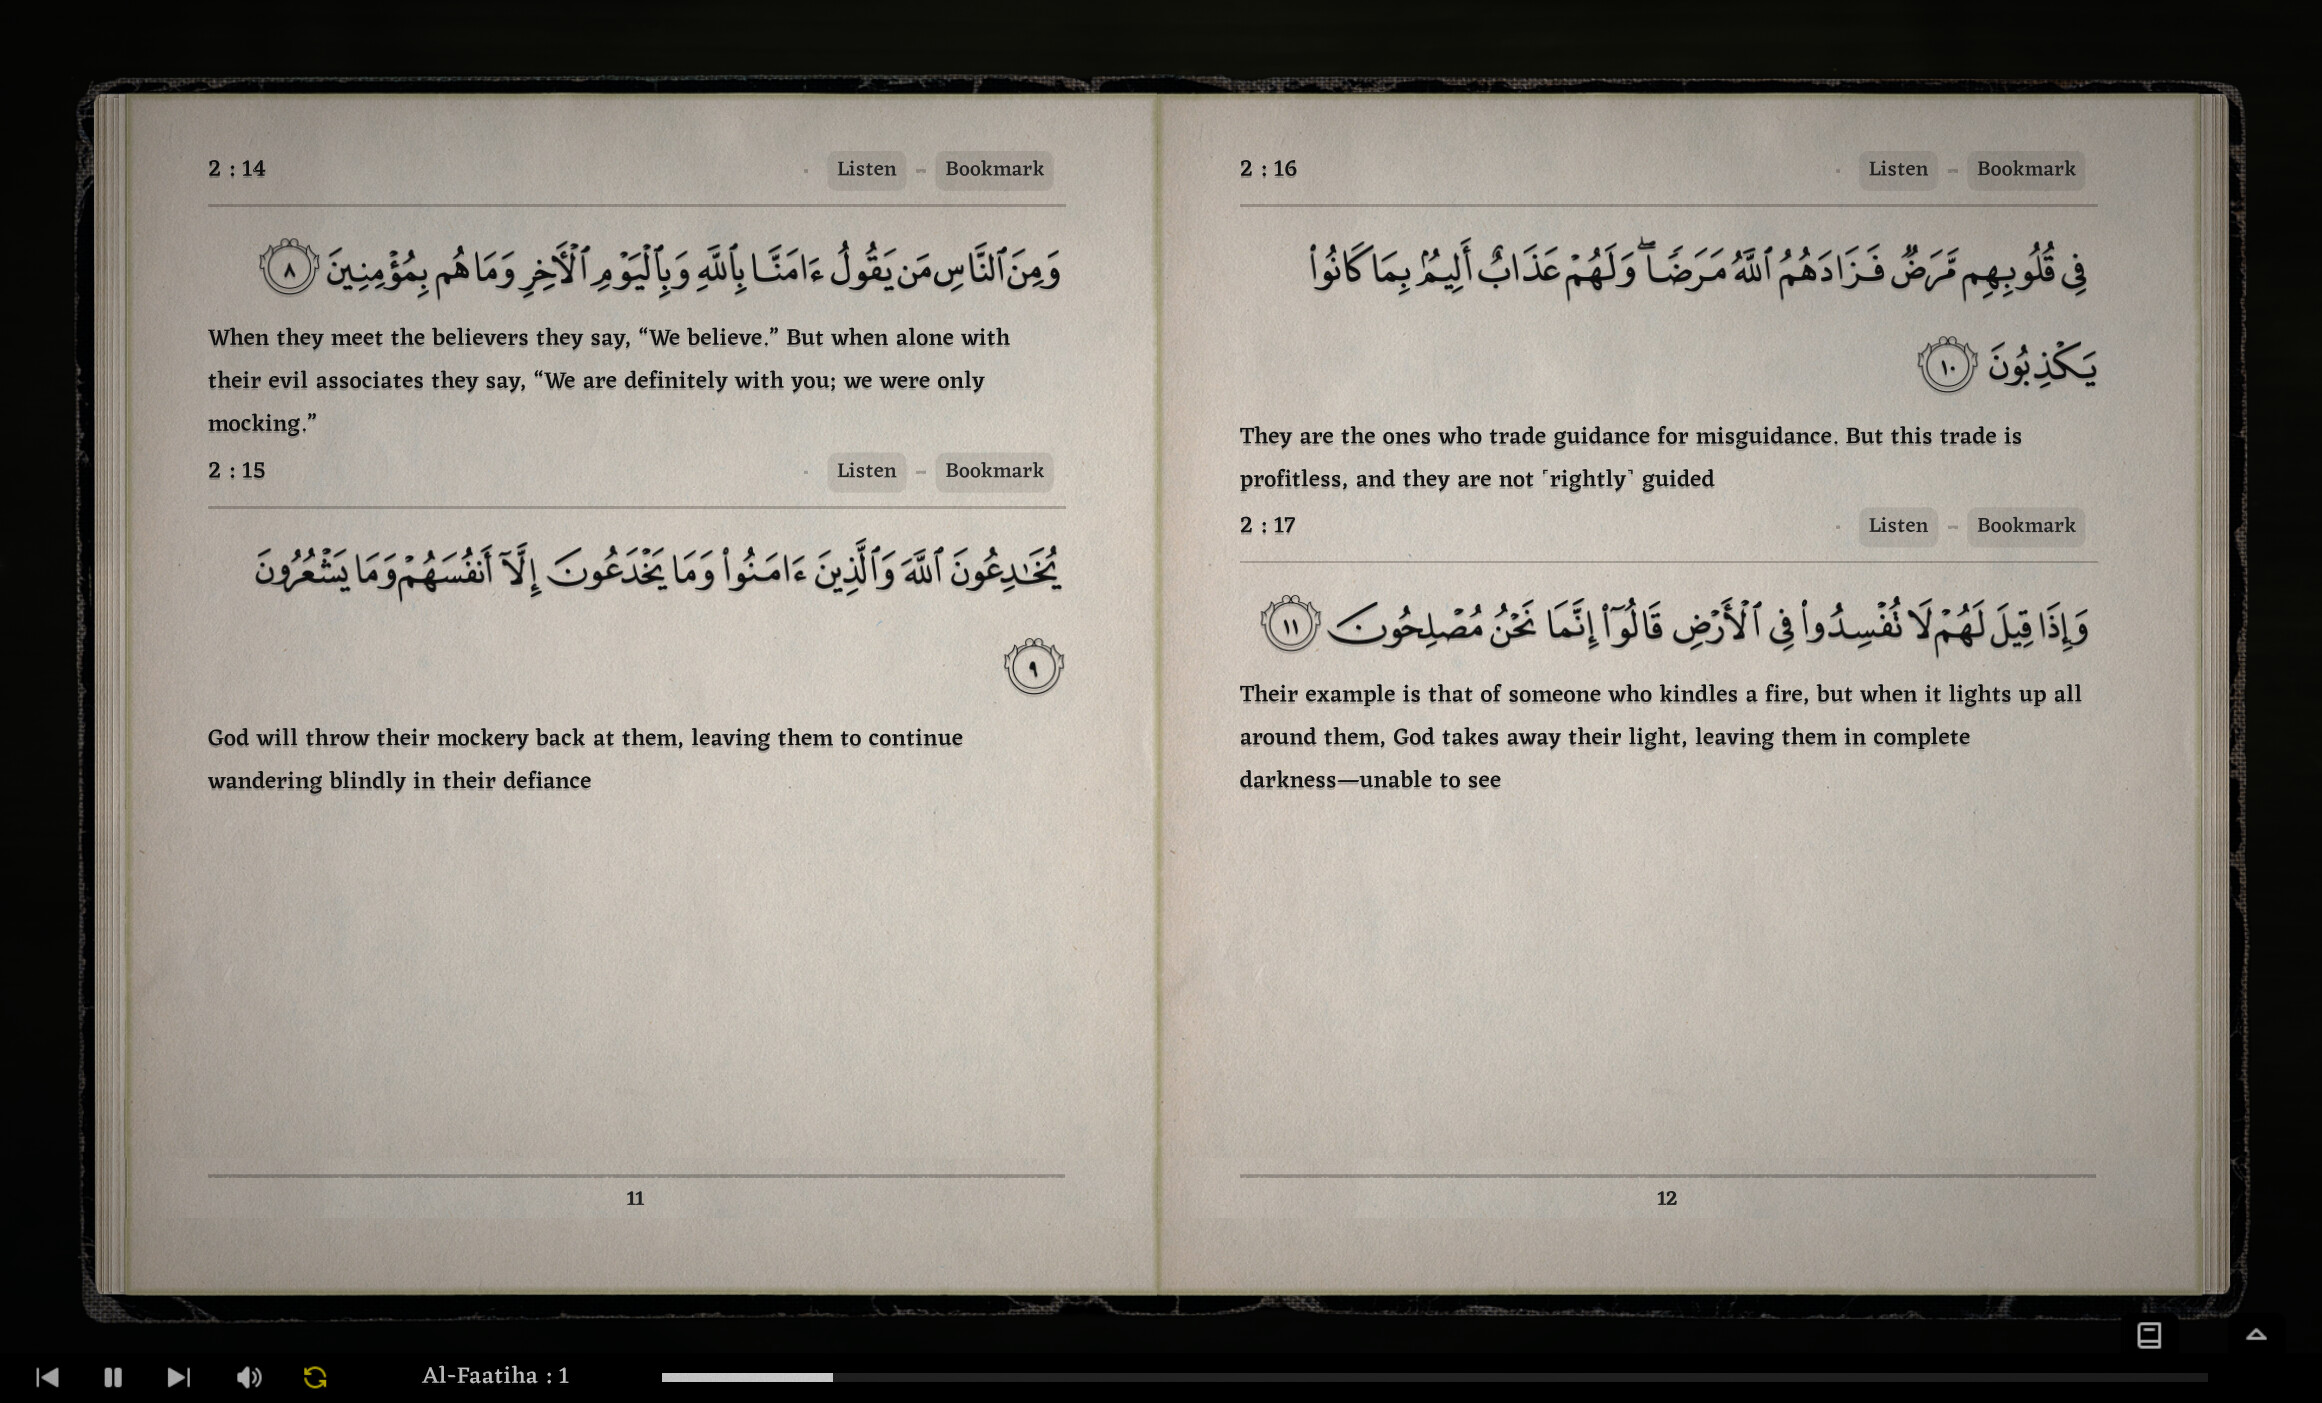 2 : 14
Listen - Bookmark
وَمِنَ ٱلنَّاسِ مَن يَقُولُ ءَامَنَّا بِٱللَّهِ وَبِٱلْيَوْمِ ٱلْأَخِرِ وَمَا هُم بِمُؤْمِنِينَ ٨
When they meet the believers they say, “We believe.” But when alone with
their evil associates they say, “We are definitely with you; we were only
mocking.”
2 : 15
Listen - Bookmark
يُخَٰدِعُونَ ٱللَّهَ وَٱلَّذِينَ ءَامَنُوا۟ وَمَا يَخْدَعُونَ إِلَّآ أَنفُسَهُمْ وَمَا يَشْعُرُونَ
٩
God will throw their mockery back at them, leaving them to continue
wandering blindly in their defiance
11
2 : 16
Listen - Bookmark
فِى قُلُوبِهِم مَّرَضٌ فَزَادَهُمُ ٱللَّهُ مَرَضًا ۖ وَلَهُمْ عَذَابٌ أَلِيمٌۢ بِمَا كَانُوا۟
يَكْذِبُونَ ١٠
They are the ones who trade guidance for misguidance. But this trade is
profitless, and they are not ˹rightly˺ guided
2 : 17
Listen - Bookmark
وَإِذَا قِيلَ لَهُمْ لَا تُفْسِدُوا۟ فِى ٱلْأَرْضِ قَالُوٓا۟ إِنَّمَا نَحْنُ مُصْلِحُونَ ١١
Their example is that of someone who kindles a fire, but when it lights up all
around them, God takes away their light, leaving them in complete
darkness—unable to see
12
Al-Faatiha : 1